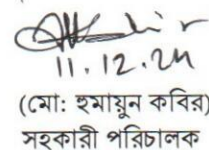 11.12.24
(মো: হুমায়ুন কবির)
সহকারী পরিচালক